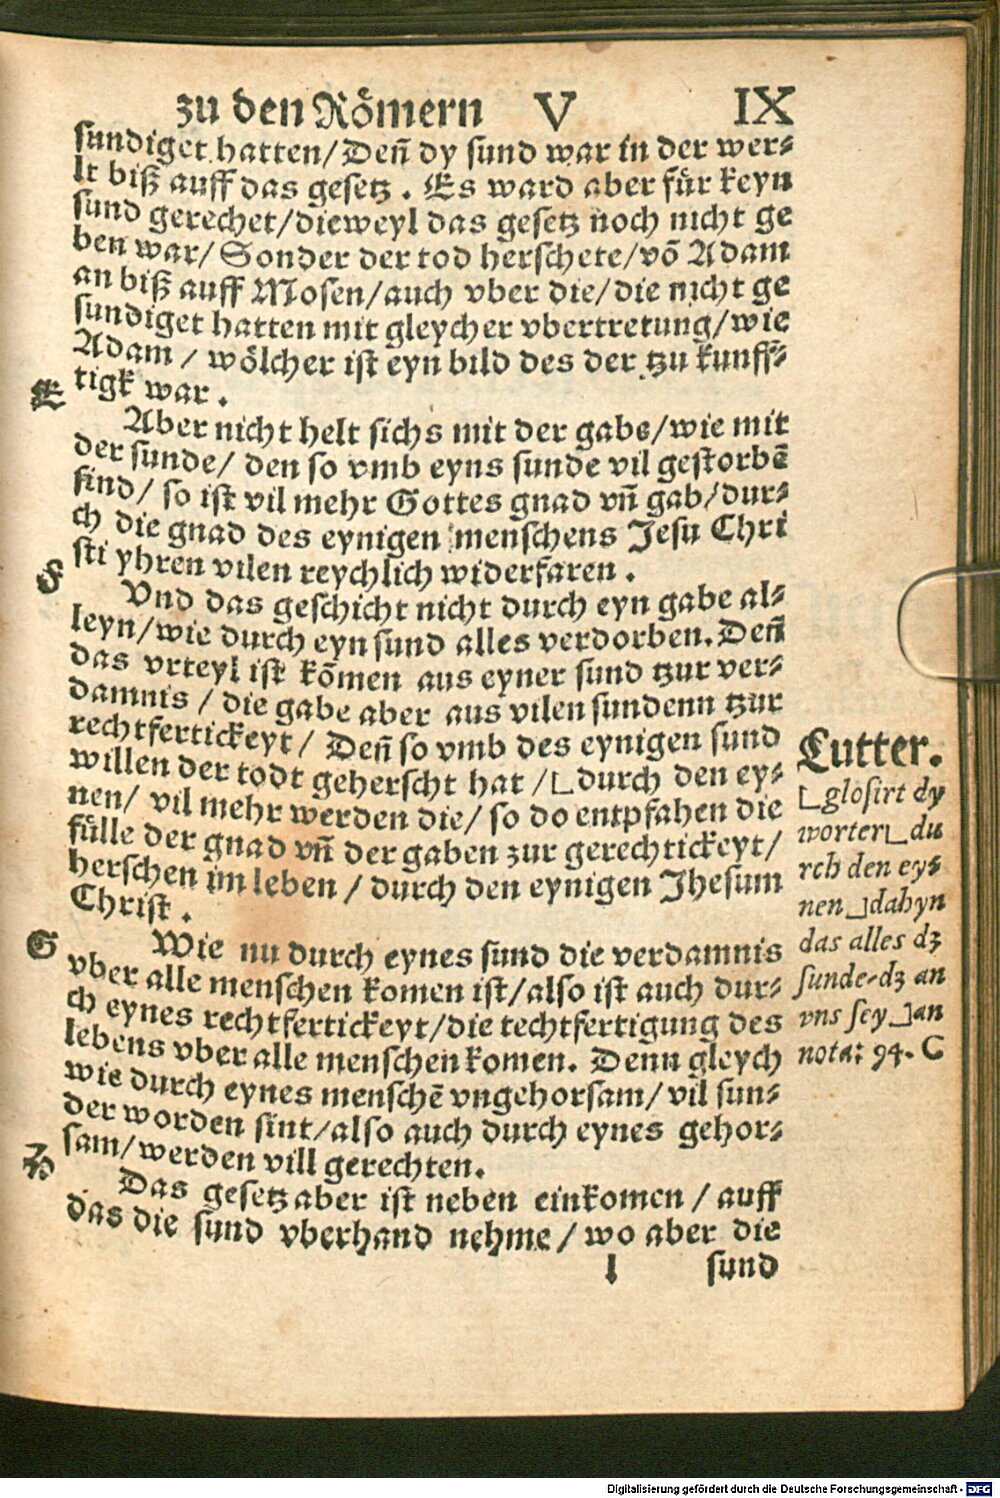 zu den Römern V IX
sundiget hatten/Deñ dy sund war in der wer⸗
lt biß auff das gesetz . Es ward aber für keyn
sund gerechet/dieweyl das gesetz noch nicht ge
ben war/ Sonder der tod herschete/võ Adam
an biß auff Mosen/auch vber die/die nicht ge
sundiget hatten mit gleycher vbertretung/wie
Adam / wölcher ist eyn bild des der tzu kunff⸗
tigk war .
E
Aber nicht helt sichs mit der gabe/wie mit
der sunde/ den so vmb eyns sunde vil gestorbẽ
sind/ so ist vil mehr Gottes gnad vñ gab/dur⸗
ch die gnad des eynigen menschens Jesu Chri
sti yhren vilen reychlich widerfaren .
F
Vnd das geschicht nicht durch eyn gabe al⸗
leyn/wie durch eyn sund alles verdorben. Deñ
das vrteyl ist kõmen aus eyner sund tzur ver⸗
damnis / die gabe aber aus vilen sundenn tzur
rechtfertickeyt/ Deñ so vmb des eynigen sund
willen der todt geherscht hat /⌊durch den ey⸗
nen/ vil mehr werden die/ so do entpfahen die
fülle der gnad vñ der gaben zur gerechtickeyt/
herschen im leben / durch den eynigen Jhesum
Christ .
G
Wie nu durch eynes sund die verdamnis
vber alle menschen komen ist/also ist auch dur⸗
ch eynes rechtfertickeyt/die techtfertigung des
lebens vber alle menschen komen. Denn gleych
wie durch eynes menschẽ vngehorsam/ vil sun⸗
der worden sint/also auch durch eynes gehor⸗
sam/werden vill gerechten.
H
Das gesetz aber ist neben einkomen / auff
das die sund vberhand nehme / wo aber die
l sund
Lutter.
⌊glosirt dy
worter⌊du
rch den ey⸗
nen⌋dahyn
das alles dʒ
sunde⸗dʒ an
vns sey⌋an
nota: 94. C
Digitalisierung gefördert durch die Deutsche Forschungsgemeinschaft - DFG